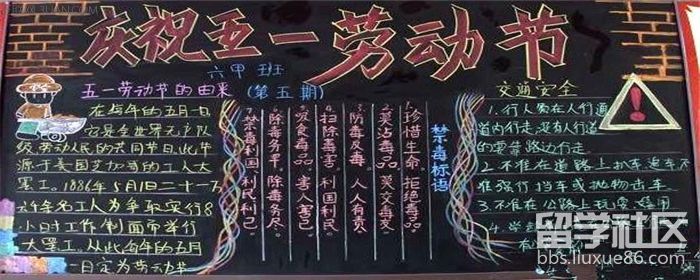 庆祝五一劳动节
六甲班
五一劳动节的由来(第五期)
在每年的五月一日
它是全世界无产阶
级、劳动人民的共同节日。此节
源于美国芝加哥的工人大
罢工。1886年5月1日二十一万
6千余名工人为争取实行8
小时工作制而举行
大罢工。从此每年的五月
一日定为劳动节
禁毒标语
1.珍惜生命,拒绝毒品。
2.莫沾毒品,莫交毒友。
3.防毒反毒,人人有责。
4.扫除毒害,利国利民。
5.吸食毒品,害人害己。
6.除毒务早,除毒务尽。
7.禁毒利国、利民利己。
交通安全
1.行人须在人行道
道内行走,没有人行道
的要靠路边行走。
2.不准在道路上扒车、追车、不
准强行拦车或抛物击车
3.不准在公路上玩耍、嬉闹
4.学
留学社区
bbs.liuxue86.com